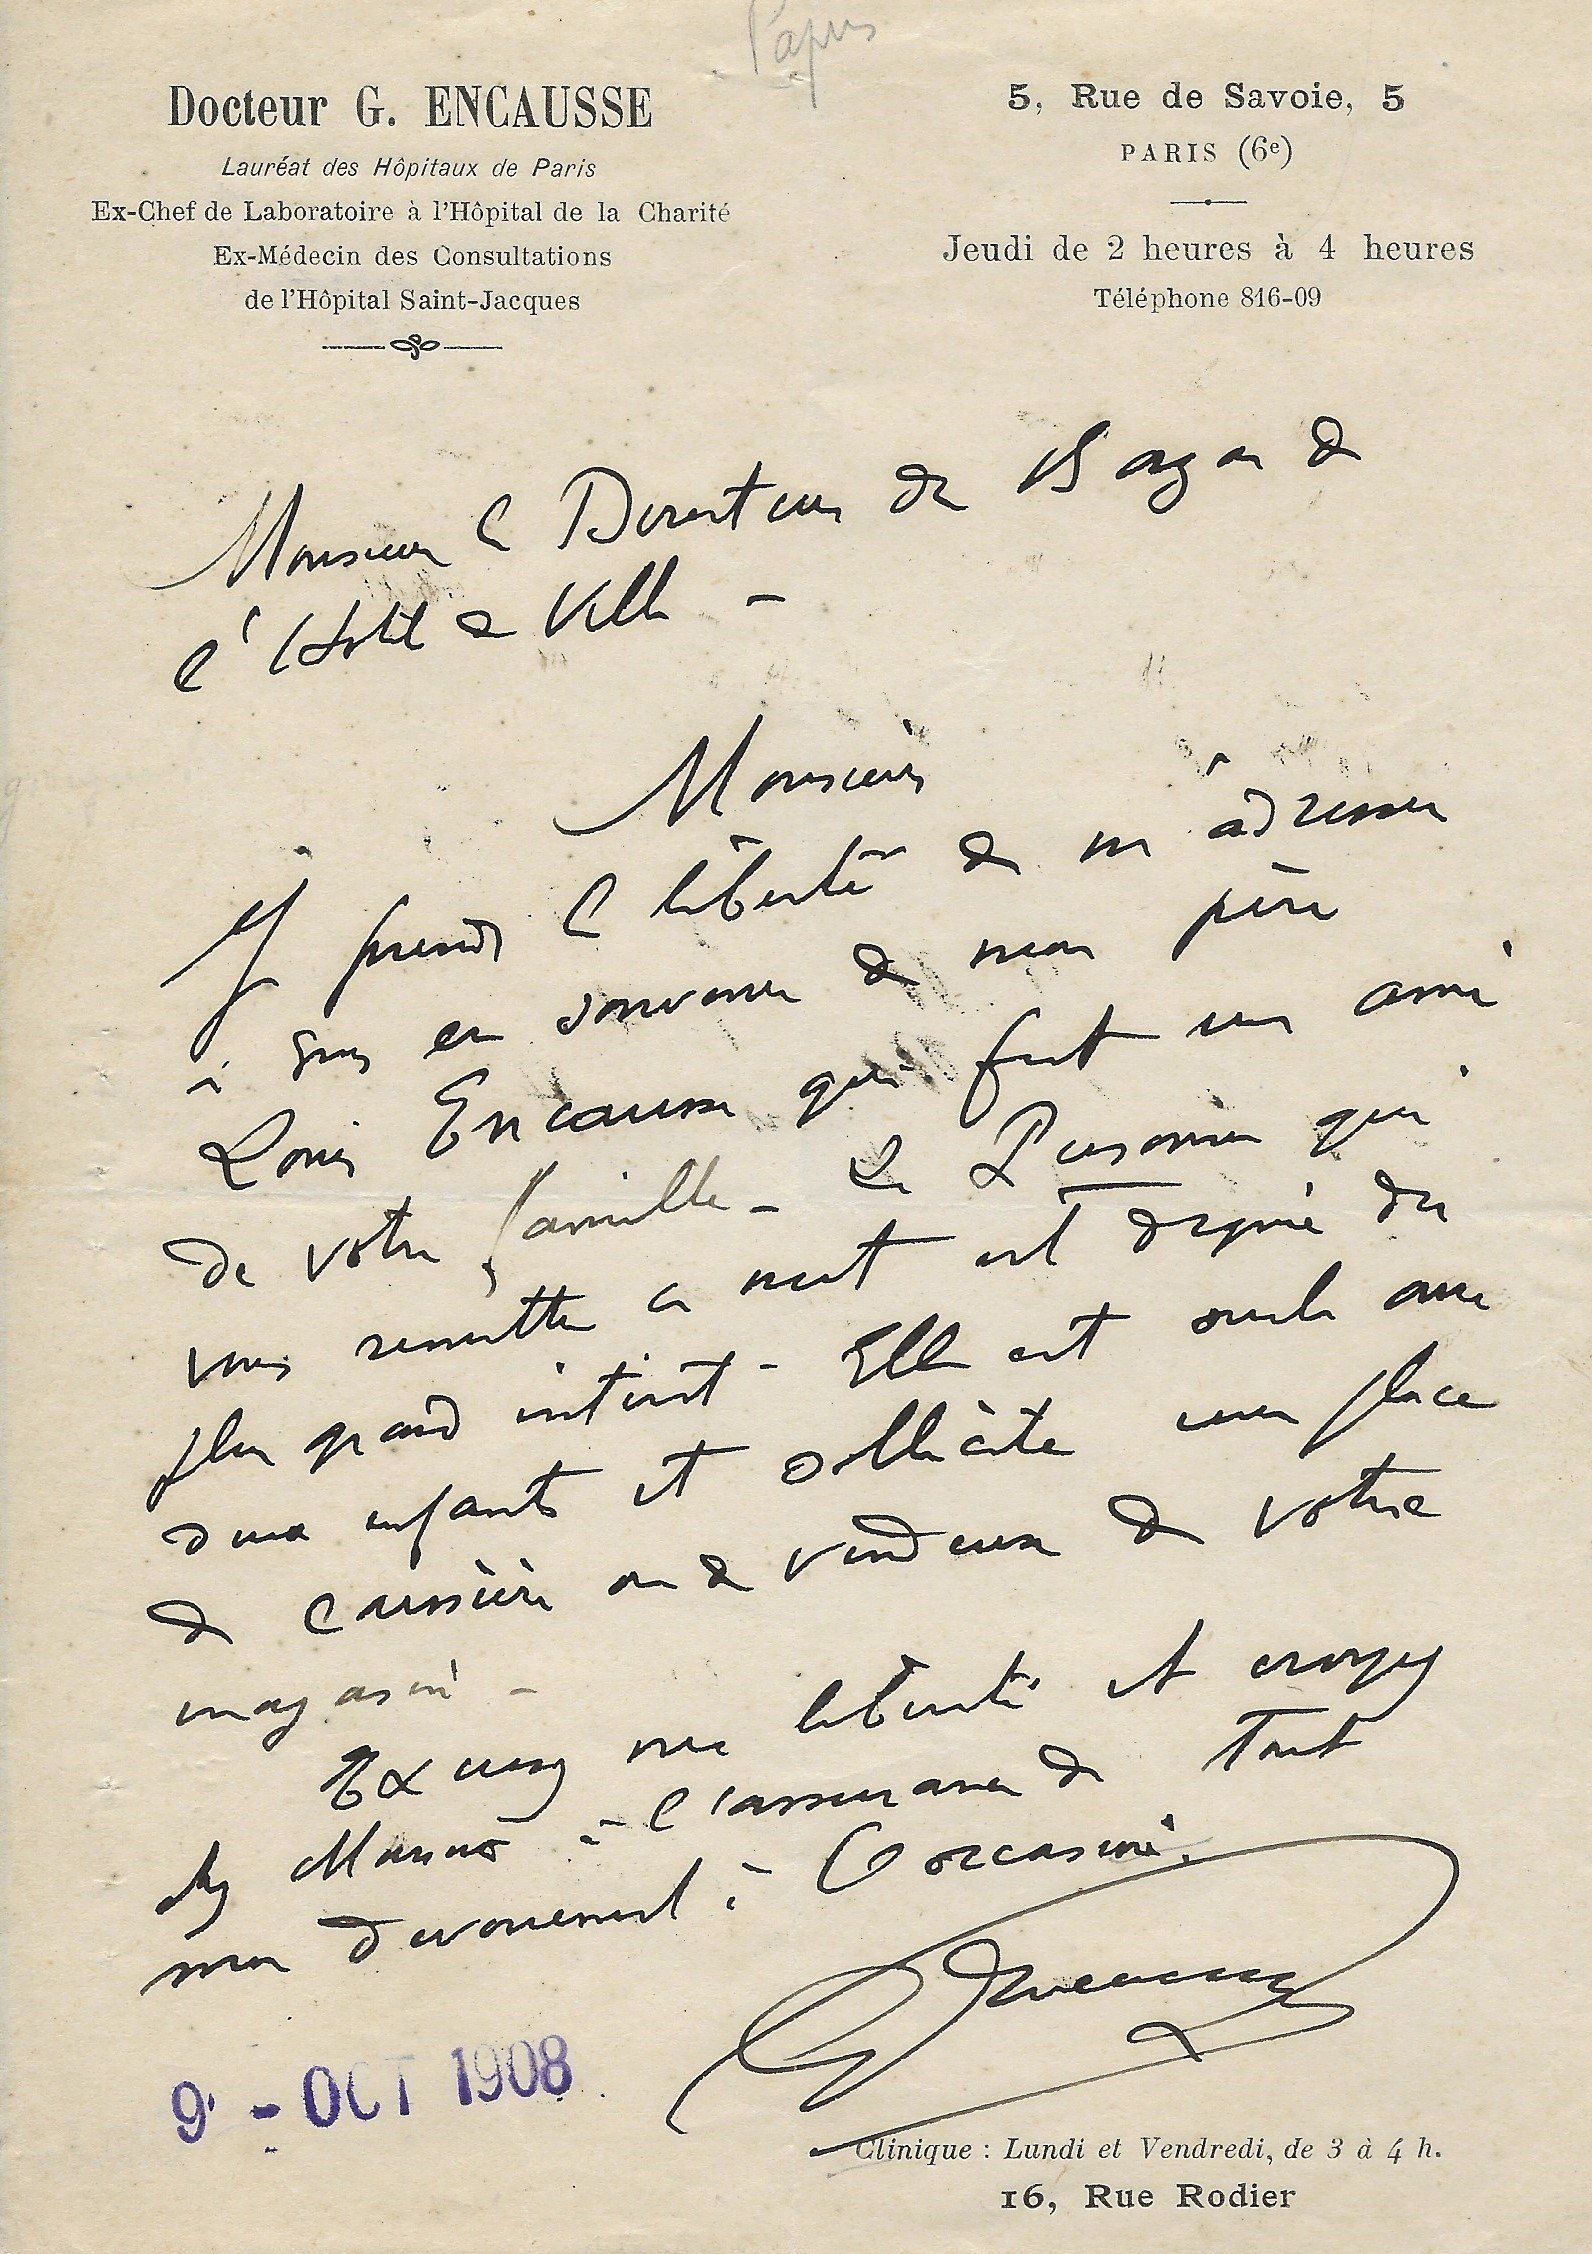 Papus
Docteur G. ENCAUSSE
Lauréat des Hôpitaux de Paris
Ex-Chef de Laboratoire à l'Hôpital de la Charité
Ex-Médecin des Consultations
de l'Hôpital Saint-Jacques
5, Rue de Savoie, 5
PARIS (6e)
Jeudi de 2 heures à 4 heures
Téléphone 816-09
Monsieur le Directeur du Bazar de
l'Hotel de Ville -
Monsieur
Je prends la liberté de m'adresser
à vous en souvenir de mon père
Louis Encausse qui fut un ami
de votre famille - La Personne qui
vous remettra ce mot est digne du
plus grand intérêt - Elle est seule avec
deux enfants et sollicite une place
de caissière ou de vendeuse de votre
magasin -
Excusez ma liberté et croyez
cher Monsieur à l'assurance de tout
mon dévouement à l'occasion.
G Encausse
9 - OCT 1908
Clinique : Lundi et Vendredi, de 3 à 4 h.
16, Rue Rodier